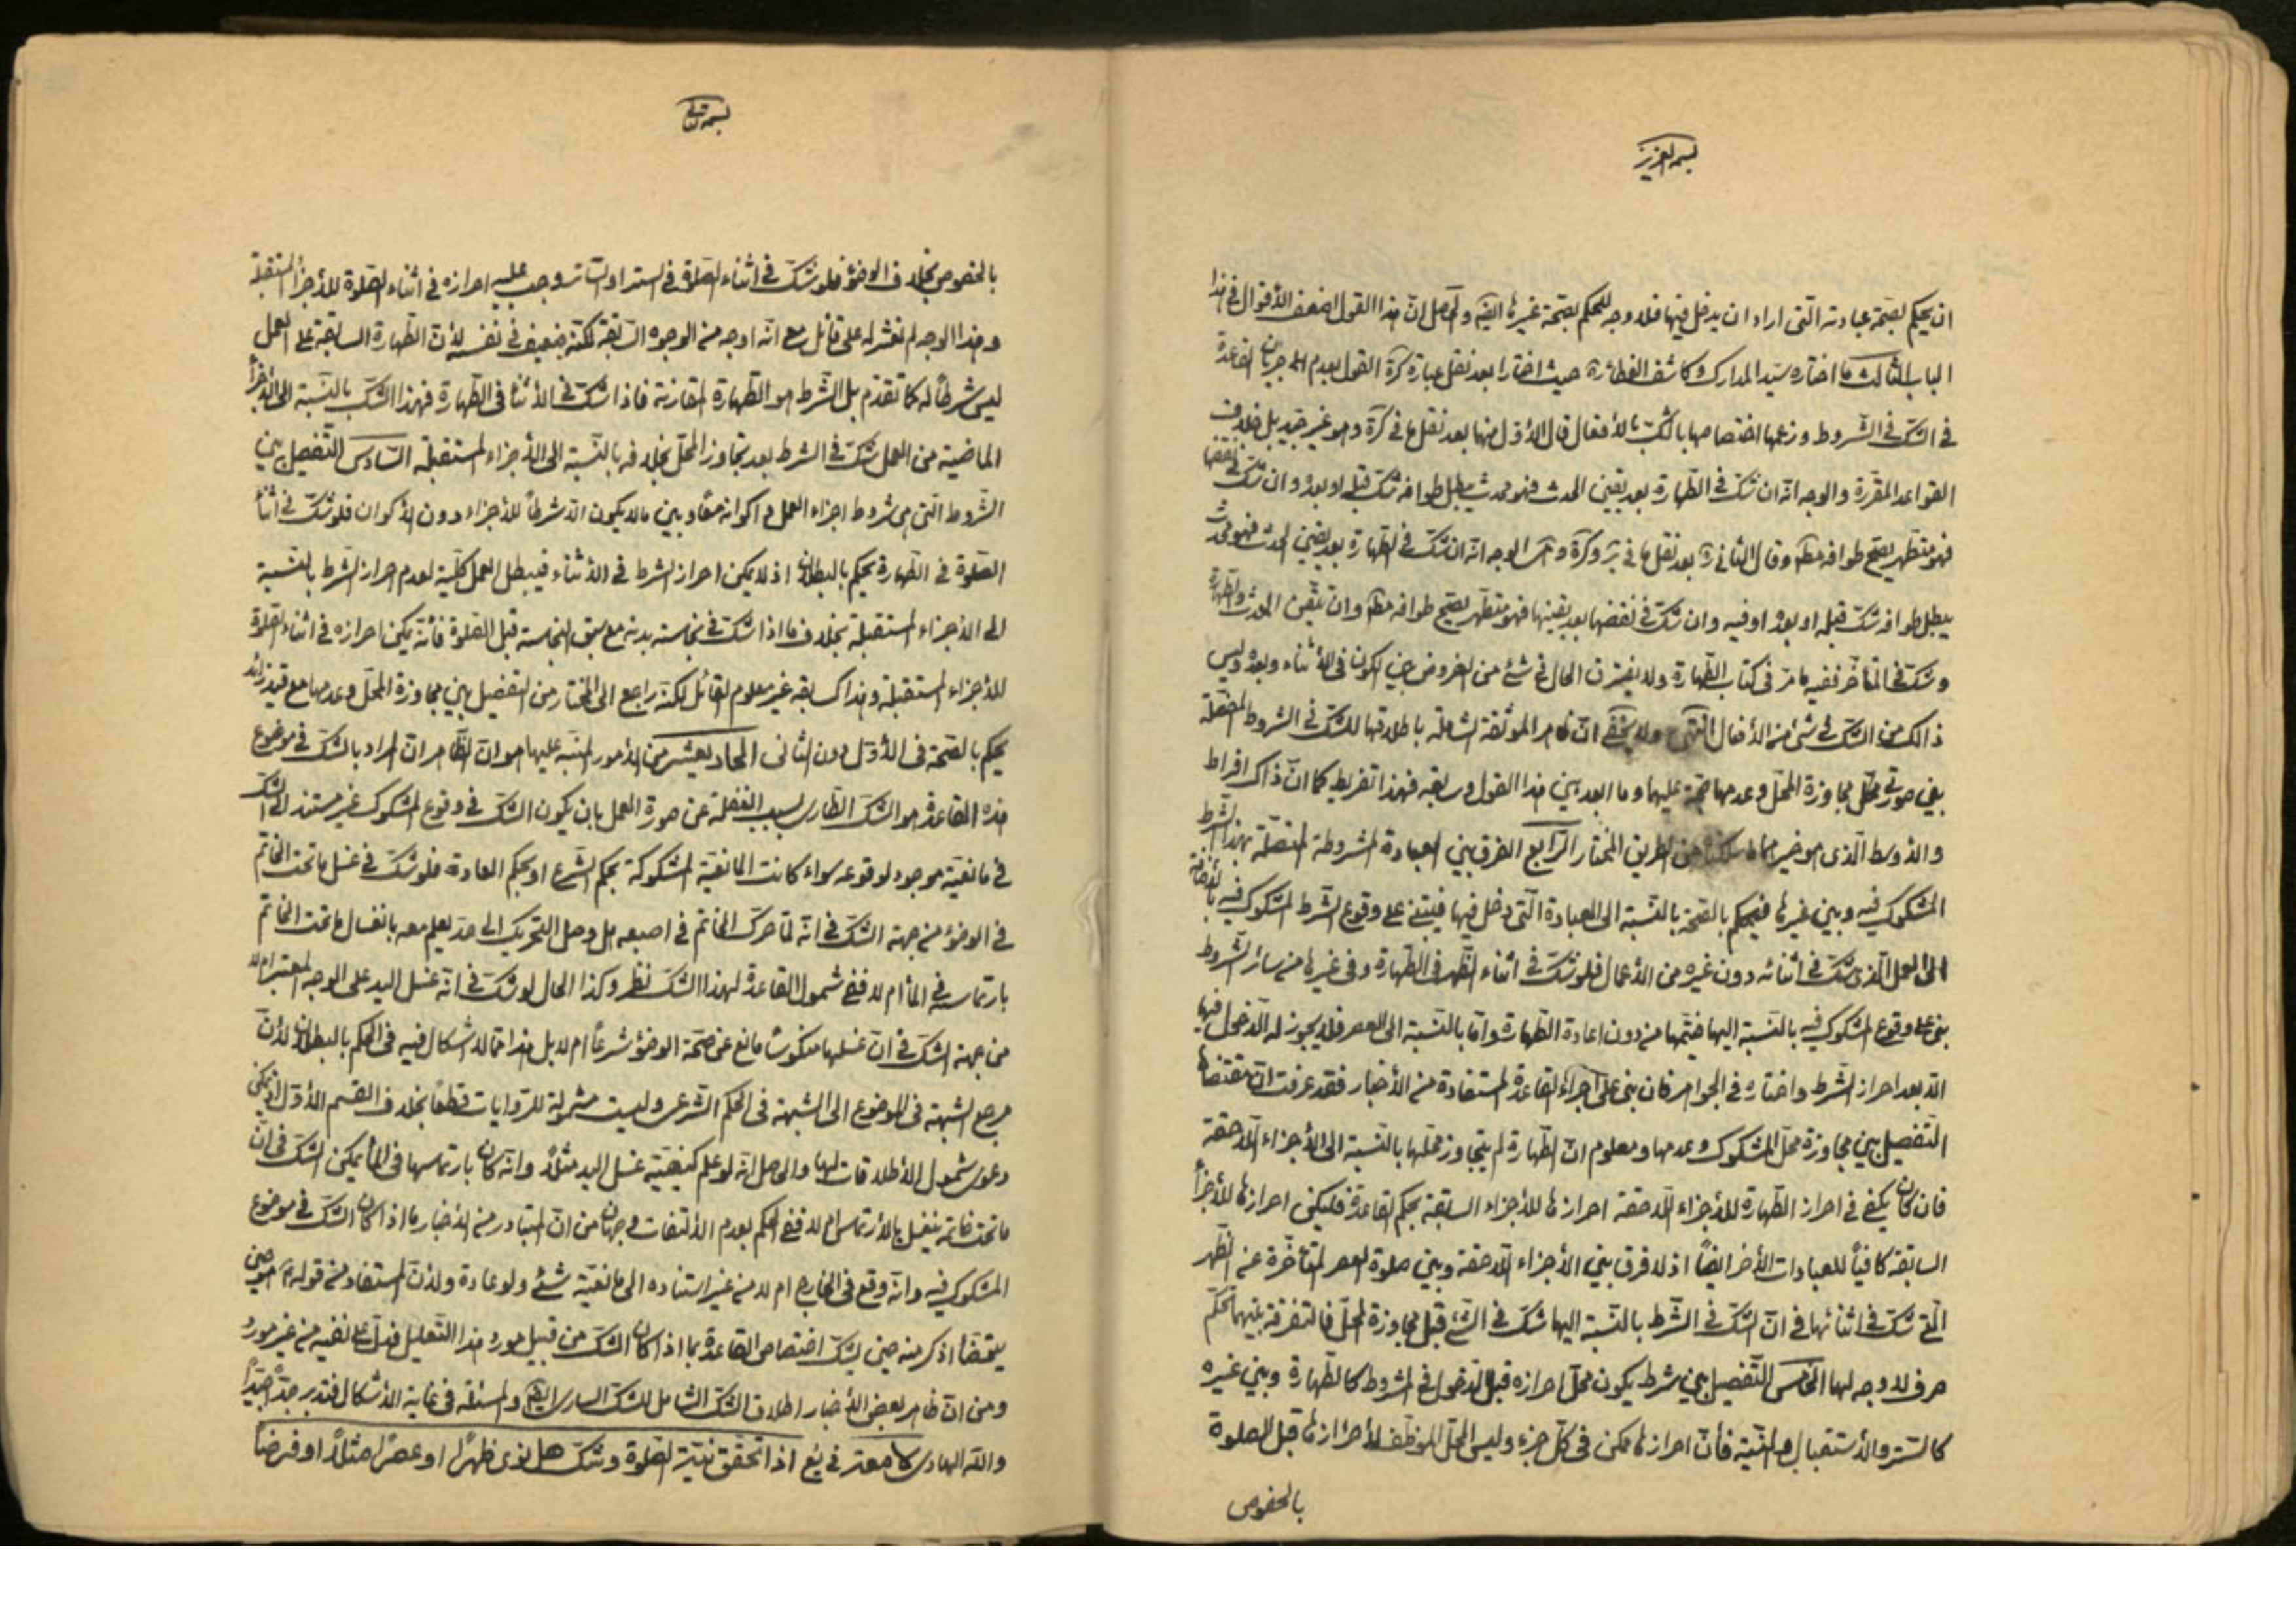 بسمه العزيز
ان يحكم بصحّة عبادته الّتى اراد ان يدخل فيها فلا وجه للحكم بصحّة غيرها ايضا والحاصل انّ هذا القول اضعف الأقوال فى هذا
الباب الثالث ما اختاره سيّد المدارك وكاشف الغطاء ره حيث اختارا بعد نقل عبارة كرة القول بعدم جريان القاعدة
فى الشكّ فى الشروط وزعمها اختصاصها بالشكّ بالأفعال قال الأوّل منهما بعد نقل ما فى كرة وهو غير جيّد بل خلاف
القواعد المقرّرة والوجه انّه ان شكّ فى الطّهارة بعد يقين الحدث فهو محدث يبطل طوافه شكّ قبله او بعده وان شكّ فى نقضها
فهو متطهر يصحّ طوافه مط وقال الثانى ره بعد نقل ما فى ير وكرة و الوجه انّه ان شكّ فى الطّهارة بعد يقين الحدث فهو محدث
يبطل طوافه شكّ قبله او بعده او فيه وان شكّ فى نقضها بعد يقينها فهو متطهّر يصحّ طوافه مط وان تيقّن الحدث والطّهارة
وشكّ فى المتأخّر ففيه ما مرّ فى كتاب الطّهارة ولا يفترق الحال فى شئ من الفروض بين الكون فى الأثناء وبعده وليس
ذالك من الشكّ فى شئ من الأفعال انتهى ولا يخفى انّ ظاهر الموثّقة الشاملة باطلاقها للشكّ فى الشروط المفصّلة
بين صورتى مجاوزة المحلّ وعدمها حجّة عليهما وما ابعد بين هذا القول وسابقه فهذا تفريط كما انّ ذاك افراط
والأوسط الّذى هو خير من الطريق المختار الرّابع الفرق بين العبادة المشروطة المتّصلة بهذا الشرط
المشكوك فيه وبين غيرها فيحكم بالصّحة بالنّسبة الى العبادة الّتى دخل فيها فيبنى على وقوع الشرط المشكوك فيه بالأضافة
الى العمل الّذى شكّ فى أثنائه دون غيره من الأعمال فلو شكّ فى اثناء الظّهر فى الطّهارة وفى غيرها من سائر الشروط
بنى على وقوع المشكوك فيه بالنّسبة اليها فيتمّها من دون اعادة الطّهارة وامّا بالنّسبة الى العصر فلا يجوز له الدّخول فيها
الّا بعد احراز الشرط واختاره فى الجواهر فان بنى على اجراء القاعدة المستفادة من الأخبار فقد عرفت انّ مقتضاها
التّفصيل بين مجاوزة محلّ المشكوك وعدمها ومعلوم انّ الطّهارة لم يتجاوز محلّها بالنّسبة الى الأجزاء اللّاحقة
فان كان يكفى فى احراز الطّهارة للأجزاء اللّاحقة احرازها للأجزاء السابقة بحكم القاعدة فليكن احرازها للأجزاء
السابقة كافياً للعبادات الأخر ايضاً اذ لا فرق بين الأجزاء اللّاحقة وبين صلوة العصر المتأخّرة عن الظّهر
الّتى شكّ فى اثنائها فى انّ الشكّ فى الشّرط بالنّسبة اليها شكّ فى الشّئ قبل مجاوزة المحلّ فالتفرقة بينهما تحكّم
صرف لا وجه لها الخامس التّفصيل بين شرط يكون محلّ احرازه قبل الدّخول فى المشروط كالطّهارة وبين غيره
كالستر والأستقبال والنيّة فأنّ احرازها ممكن فى كلّ جزء وليس المحلّ الموظّف لأحرازها قبل الصلوة
بالخصوص
بسمه تعالى
بالخصوص بخلاف الوضوء فلو شكّ فى اثناء الصلوة فى الستر او السّاتر وجب عليه احرازه فى اثناء الصلوة للأجزاء المستقبلة
وهذا الوجه لم نعثر له على قائل مع انّه اوجه من الوجوه السّابقة لكنّه ضعيف فى نفسه لأنّ الطّهارة السابقة على العمل
ليس شرطاً له كما تقدّم بل الشّرط هو الطّهارة المقارنة فاذا شكّ فى الأثناء فى الطّهارة فهذا الشكّ بالنّسبة الى الأجزاء
الماضية من العمل شكّ فى الشرط بعد تجاوز المحلّ بخلافه بالنّسبة الى الأجزاء المستقبلة السّادس التّفصيل بين
الشّروط الّتى هى شروط اجزاء العمل واكوانه معًا وبين ما لا يكون الّا شرطاً للأجزاء دون الأكوان فلو شكّ فى اثناء
الصّلوة فى الطّهارة يحكم بالبطلان اذ لا يمكن احراز الشرط فى الأثناء فيبطل العمل كلّية لعدم احراز الشرط بالنّسبة
الى الأجزاء المستقبلة بخلاف ما اذا شكّ فى نجاسة بدنه مع سبق النجاسة قبل الصّلوة فأنّه يمكن احرازه فى اثناء الصّلوة
للأجزاء المستقبلة وهذا كسابقه غير معلوم القائل لكنّه راجع الى المختار من التفصيل بين مجاوزة المحلّ وعدمها مع قيد زائد
يحكم بالصّحة فى الأوّل دون الثانى الحاد يعشر من الأمور المنبّه عليها هو انّ الظّاهر انّ المراد بالشكّ فى موضوع
هذه القاعدة هو الشكّ الطّارى بسبب الغفلة عن صورة العمل بان يكون الشكّ فى وقوع المشكوك غير مستند الى الشكّ
فى مانعيّة موجود لوقوعه سواء كانت المانعيّة المشكوكة بحكم الشّرع او بحكم العادة فلو شكّ فى غسل ما تحت الخاتم
فى الوضوء من جهة الشكّ فى انّه لمّا حرّك الخاتم فى اصبعه هل وصل التّحريك الى حدّ يعلم معه بانغسال ما تحت الخاتم
بارتماسه فى الماء ام لا ففى شمول القاعدة لهذا الشكّ نظر وكذا الحال لو شكّ فى انّه غسل اليد على الوجه المعتبر ام لا
من جهة الشكّ فى انّ غسلها منكوسًا مانع عن صحّة الوضوء شرعًا ام لا بل هذا ممّا لا اشكال فيه فى الحكم بالبطلان لأنّ
مرجع الشبهة فى الموضوع الى الشبهة فى الحكم الشّرعى وليست مشمولة للرّوايات قطعًا بخلاف القسم الأوّل اذ يمكن
دعوى شمول الأطلاقات لها والحاصل انّه لو علم كيفيّة غسل اليد مثلًا وانّه كان بارتماسها فى الماء لكن الشكّ فى انّ
ما تحت خاتمه ينغسل بالأرتماس ام لا ففى الحكم بعدم الألتفات وجهان من انّ المتبادر من الأخبار ما اذا كان الشكّ فى موضوع
المشكوك فيه وانّه وقع فى الخارج ام لا من غير استناده الى مانعيّة شئ ولو عادة ولأنّ المستفاد من قوله هو حين
يتوضّأ اذكر منه حين يشكّ اختصاص القاعدة بما اذا كان الشكّ من قبيل مورد هذا التّعليل فدلّ على نفيه من غير مورده
ومن انّ ظاهر بعض الأخبار اطلاق الشكّ الشامل للشكّ السارى ايضا والمسئلة فى غاية الأشكال فتدبر جدًّا جيّدًا
والله الهادى معتر فى يع اذا تحقّق نيّة الصّلوة وشكّ هل نوى ظهرًا او عصرًا مثلًا او فرضا